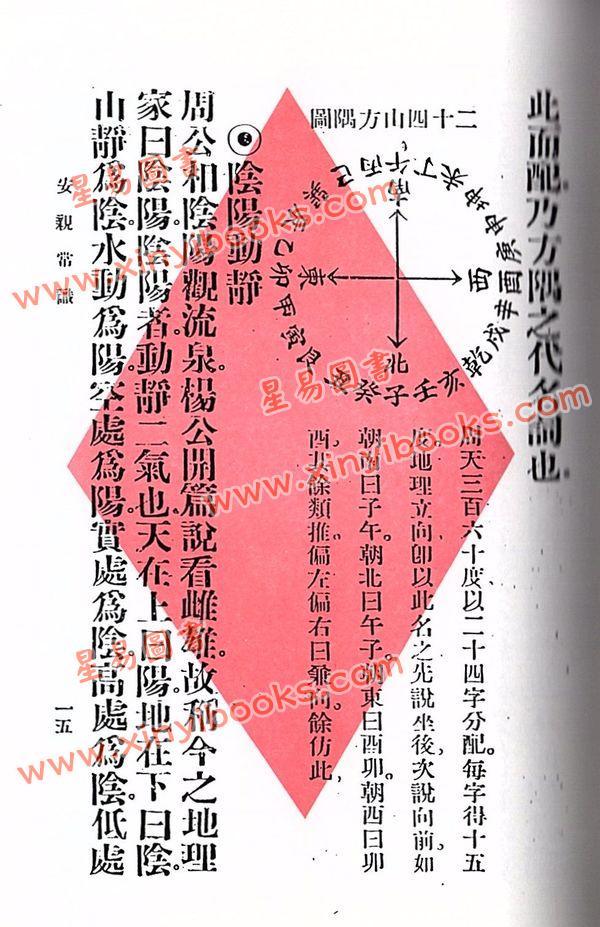 此而配乃方隅之代名詞也
二十四山方隅圖
南
巳丙午丁未坤申
庚酉辛戌乾亥壬
子癸艮寅甲卯乙
西
東
北
周天三百六十度以二十四字分配。每字得十五
度。地理立向卽以此名之先說坐後次說向前。如
朝南曰子午。朝北曰午子。朝東曰酉卯。朝西曰卯
酉。其餘類推。偏左偏右曰兼向。餘仿此。
陰陽動靜
周公相陰陽觀流泉。楊公開篇說看雌雄。故稱今之地理
家曰陰陽。陰陽者。動靜二氣也。天在上曰陽。地在下曰陰。
山靜爲陰。水動爲陽。空處爲陽。實處爲陰。高處爲陰。低處
安親常識
一五
星易圖書
www.xinyibooks.com
星易圖書
www.xinyibooks.com
星易圖書
www.xinyibooks.com
星易圖書
www.xinyibooks.com